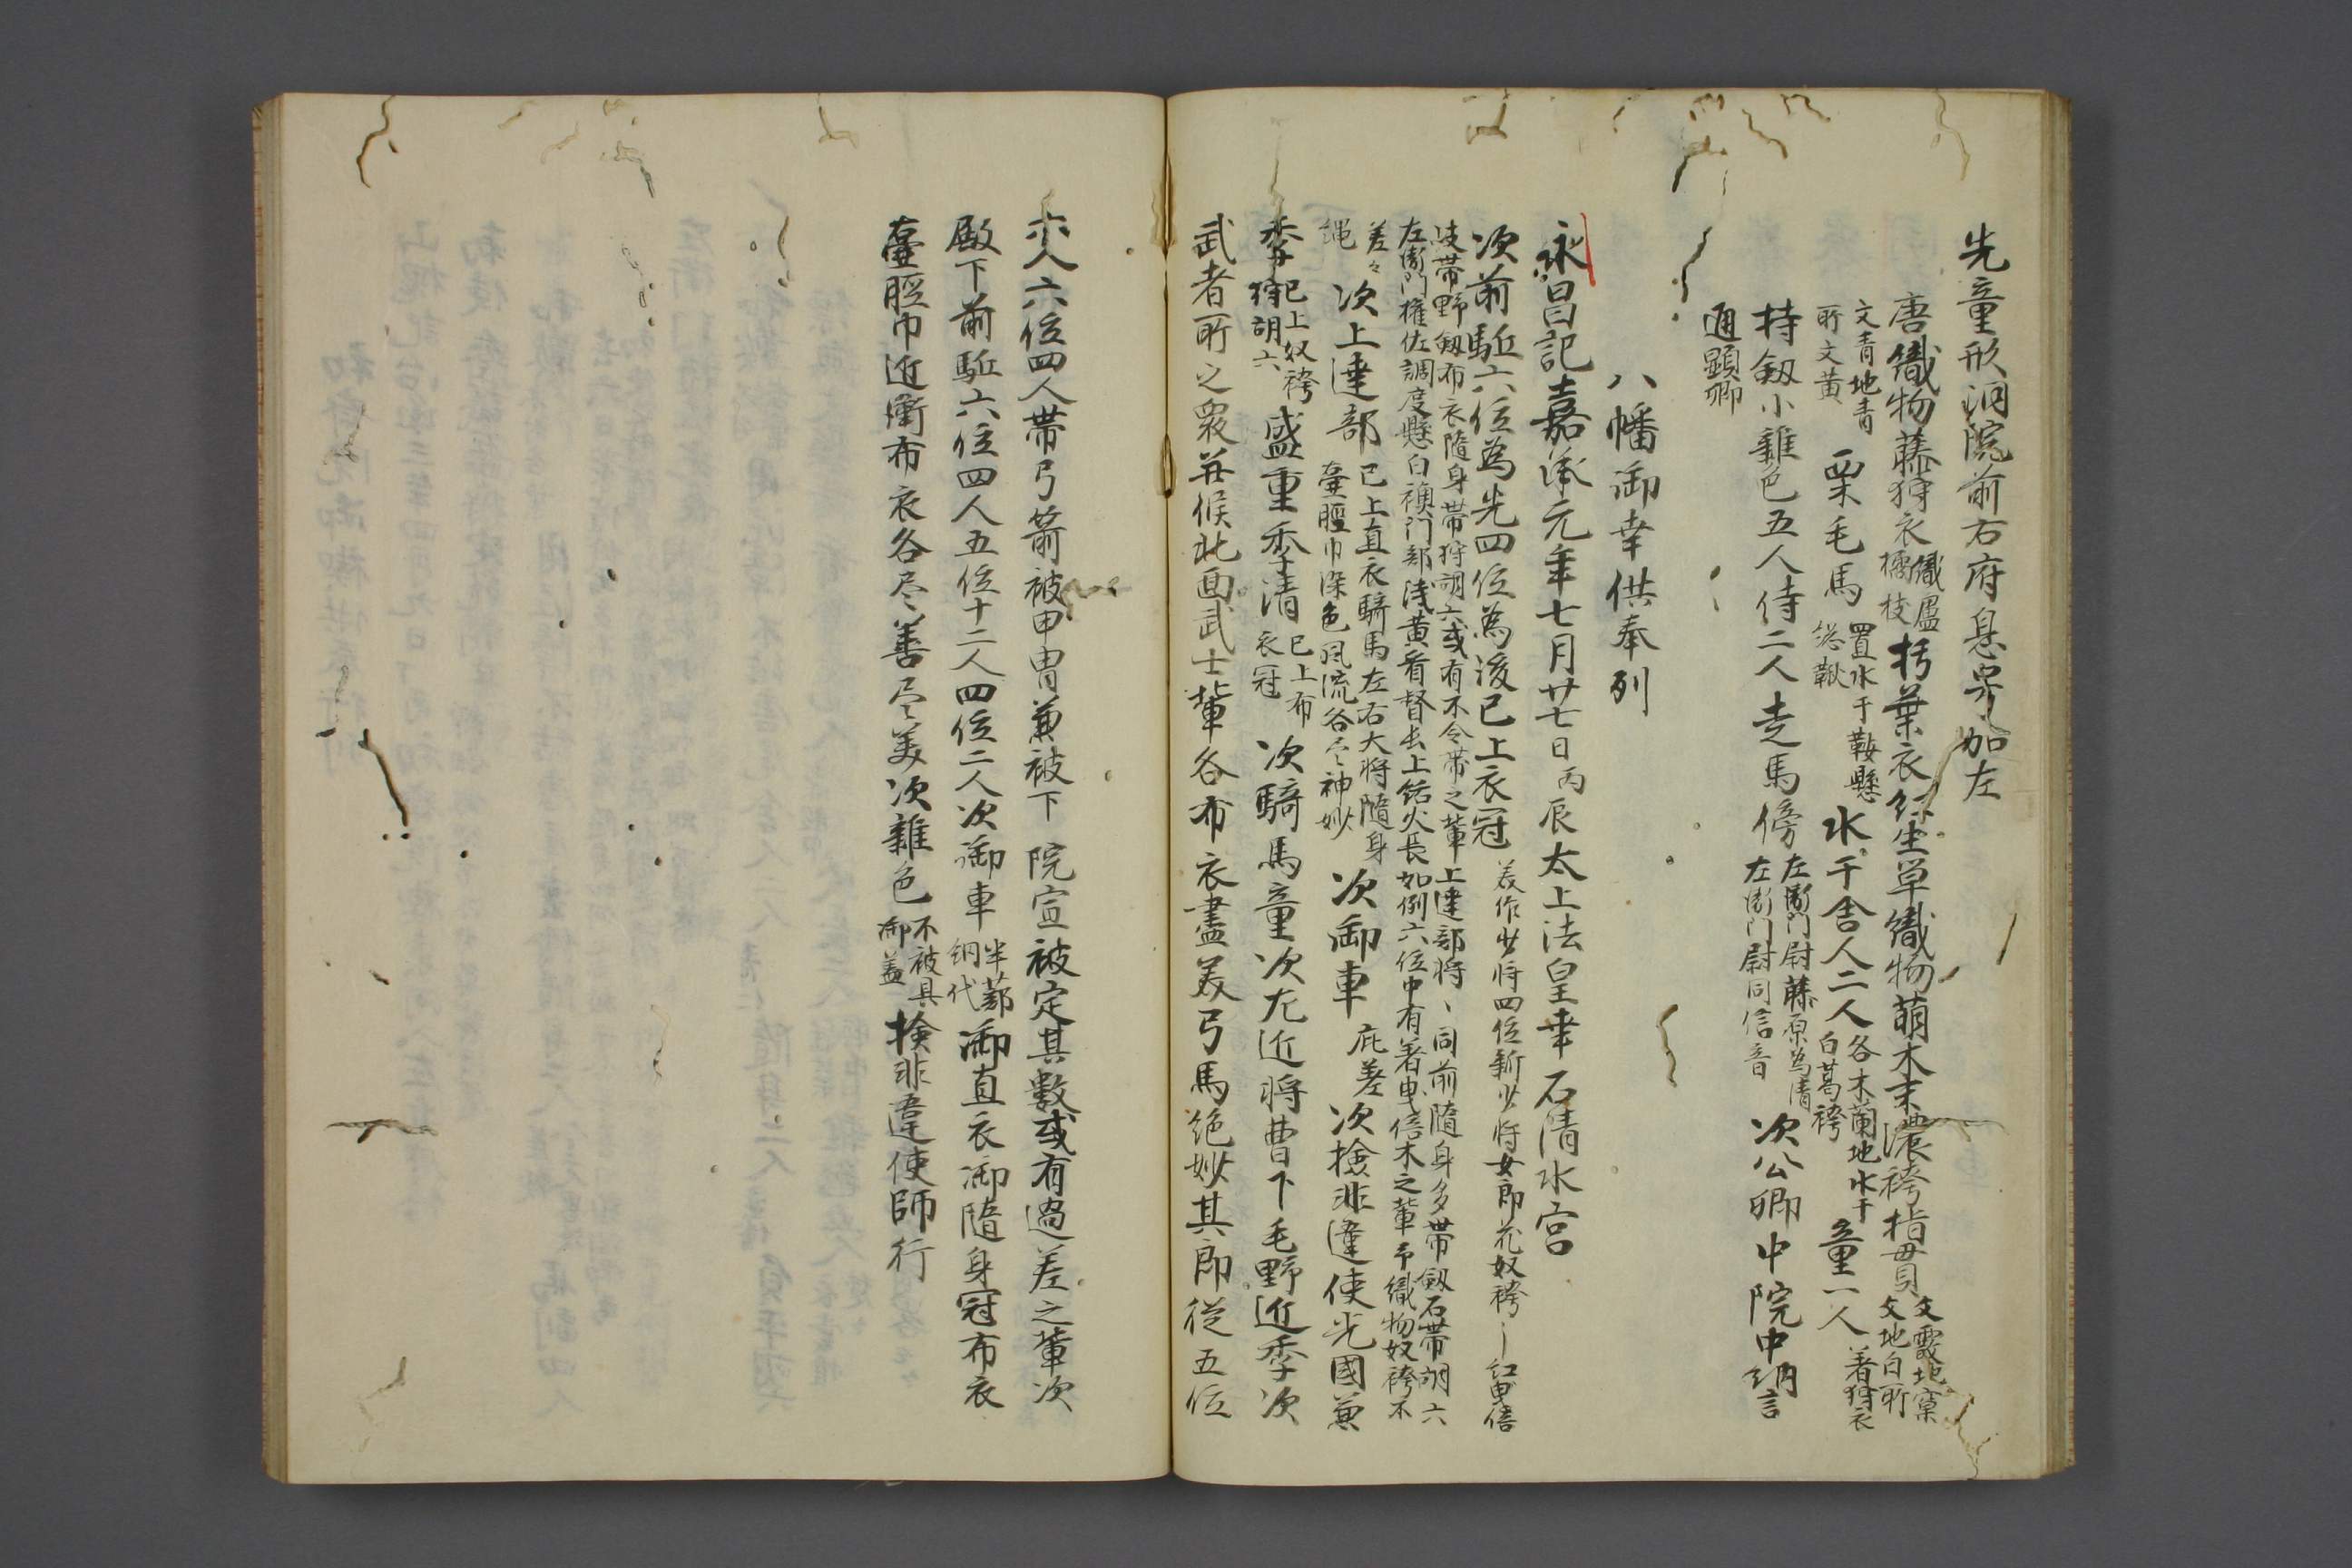 先童形洞院前右府息公加左
唐織物藤狩衣織廬橘枝朽葉衣紅生草織物萌木末濃袴指貫文霰地窠文地白所
文青地青所文黄栗毛馬置水干鞍懸総鞦水干舎人二人各木蘭地水干白葛袴童一人着狩衣
持釼小雑色五人侍二人走馬傍左衛門尉藤原為清左衛門尉同信音次公卿中院中納言
通顕卿
八幡御幸供奉列
永昌記嘉承元年七月廿七日丙辰太上法皇幸石清水宮
次前駈六位為先四位為後已上衣冠美作少将四位新少将女郎花奴袴紅曳倍
支帯野釼布衣随身帯狩胡六或有不令帯之輩上達部将同前随身多帯釼石帯胡六
左衛門権佐調度懸白襖門部浅黄看督長上結火長如例六位中有著曳倍木之輩布織物奴袴不
差々
縄次上達部已上直衣騎馬左右大将随身藁脛巾染色風流各尽神妙次御車庇差次検非違使光国兼
季已上奴袴狩胡六盛重季清已上布衣冠次騎馬童次左近将曹下毛野近季次
武者所之衆并候北面武士輩各布衣盡美弓馬絶妙其郎従五位
六人六位四人帯弓箭被甲冑兼被下院宣被定其數或有過差之輩次
殿下前駈六位四人五位十二人四位二人次御車半蔀網代御直衣御随身冠布衣
藁脛巾近衛布衣各尽善尽美次雑色不被具御蓋検非違使師行